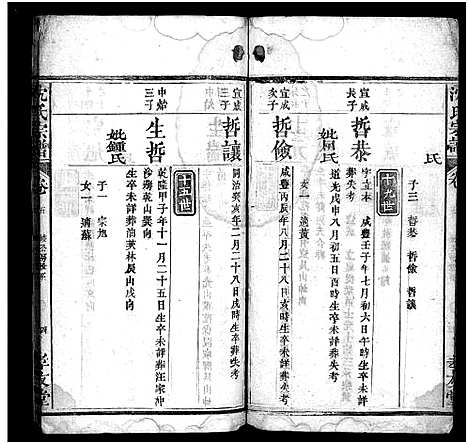 氏
子三 哲恭 哲儉 哲讓
十九世
宣成長子
哲恭
字立本 咸豐壬子年七月初六日午時生卒未詳
葬失考
妣周氏
道光戊申八月初五日酉時生卒未詳葬失考
女一
宣成次子
哲儉
咸豐丙辰年八月二十八日亥時生卒未詳葬失考
宣成三子
哲讓
同治癸亥年二月二十八日戌時生卒未詳葬失考
十世
中始三子
生哲
乾隆甲子年十一月二十五日生卒未詳葬汪家沖
沙塝乾山巽向
妣鍾氏
生卒未詳葬油萊林辰山戌向
子一 宗旭
女一 適蘇
沈氏宗譜
孝友堂